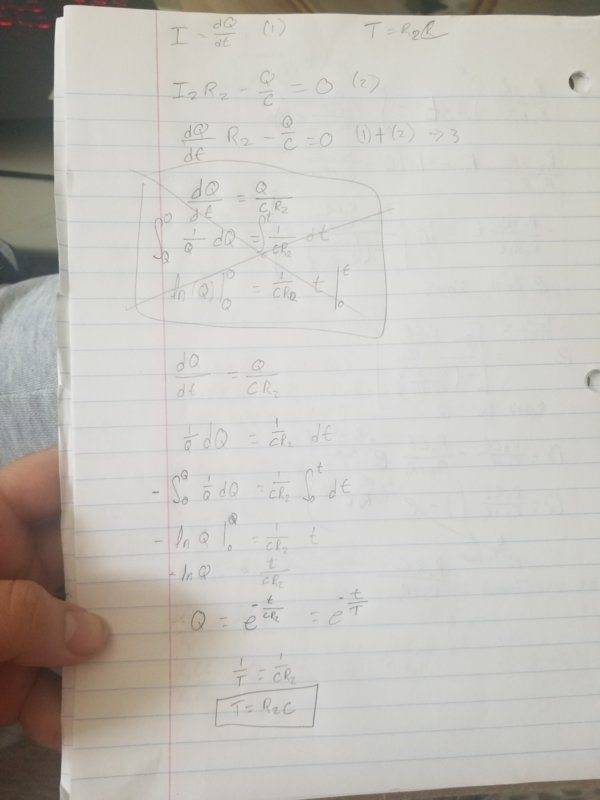 I = dQ/dt (1) T = R₂C
I₂R₂ - Q/C = 0 (2)
dQ/dt R₂ - Q/C = 0 (1)+(2) → 3
dQ/dt = Q/CR₂
∫ 1/Q dQ = ∫ 1/CR₂ dt
ln(Q)|⁰_Q = 1/CR₂ t |ᵗ₀
dQ/dt = Q/CR₂
1/Q dQ = 1/CR₂ dt
- ∫₀^Q 1/Q dQ = 1/CR₂ ∫₀^t dt
- ln Q |₀^Q = 1/CR₂ t
- ln Q t/CR₂
Q = e^(-t/CR₂) = e^(-t/T)
1/T = 1/CR₂
T = R₂C